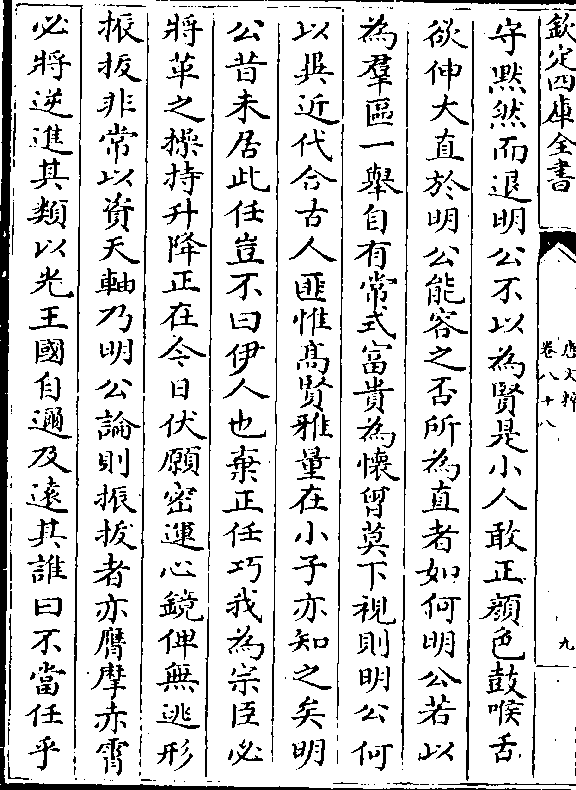 欽定四庫全書
唐文粹
卷八十八
九
守黙然而退明公不以為賢是小人敢正顔色鼓喉舌
欲伸大直於明公能容之否所為直者如何明公若以
為羣區一舉自有常式富貴為懐曾莫下視則明公何
以異近代合古人匪惟髙賢雅量在小子亦知之矣明
公昔未居此任豈不曰伊人也棄正任巧我為宗臣必
將革之操持升降正在今日伏願密運心鏡俾無逃形
振拔非常以資天軸乃明公論則振拔者亦膺摩赤霄
必將逆進其類以光王國自邇及逺其誰曰不當任乎